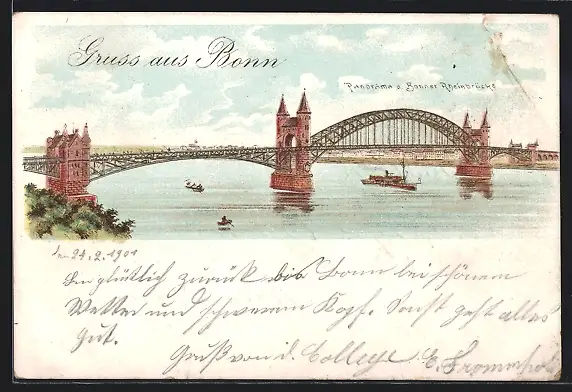 Gruss aus Bonn
Panorama d. Bonner Rheinbrücke
24.2.1901
Bin glücklich zurück bis Bonn bei schönem
Wetter und schwerem Kopf. Sonst geht alles
gut.
Gruß von d. College E.